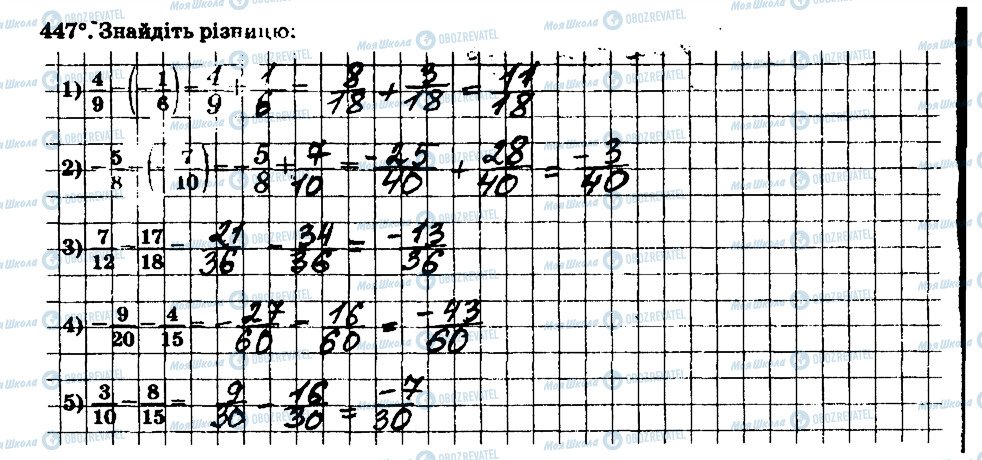 447°. Знайдіть різницю:
1) 4/9 − (−1/6) = 4/9 + 1/6 = 8/18 + 3/18 = 11/18
2) −5/8 − (−7/10) = −5/8 + 7/10 = −25/40 + 28/40 = −3/40
3) 7/12 − 17/18 = 21/36 − 34/36 = −13/36
4) −9/20 − 4/15 = −27/60 − 16/60 = −43/60
5) 3/10 − 8/15 = 9/30 − 16/30 = −7/30